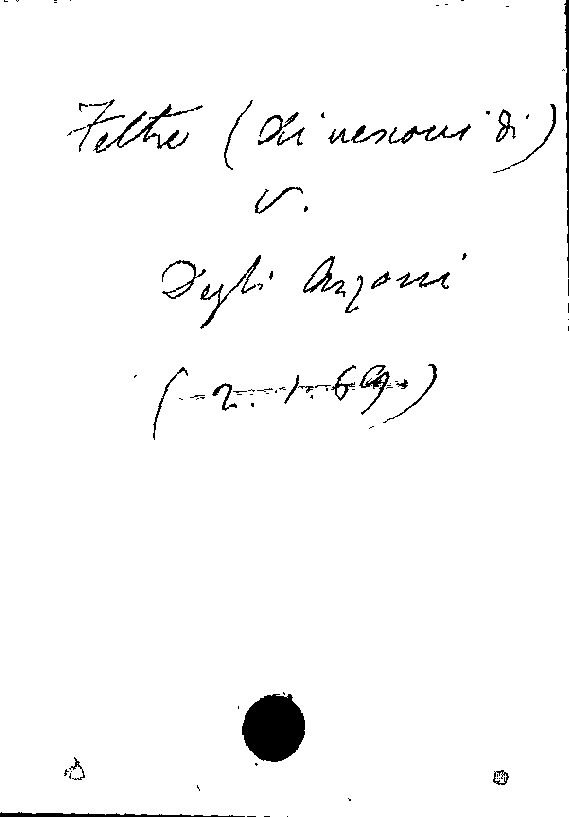 Feltre (Dei vescovi di)
v.
Degli Azzoni
(2.1.69)